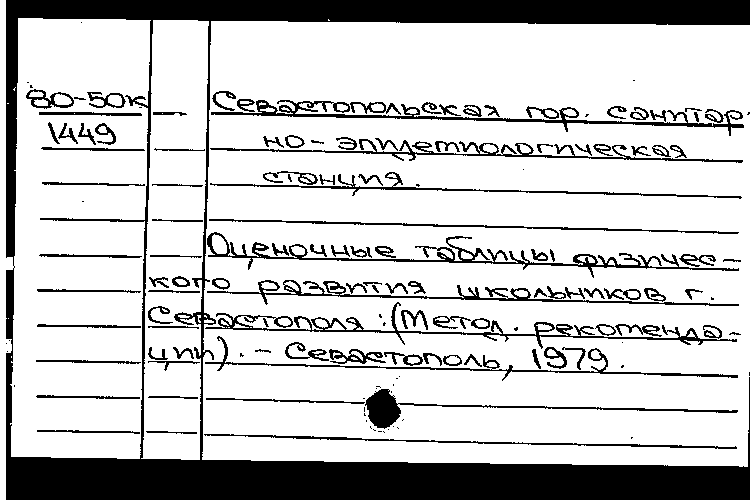 80-50к Севастопольская гор. санитар-
1449 но-эпидемиологическая
станция.
Оценочные таблицы физичес-
кого развития школьников г.
Севастополя: (Метод. рекоменда-
ции). - Севастополь, 1979.